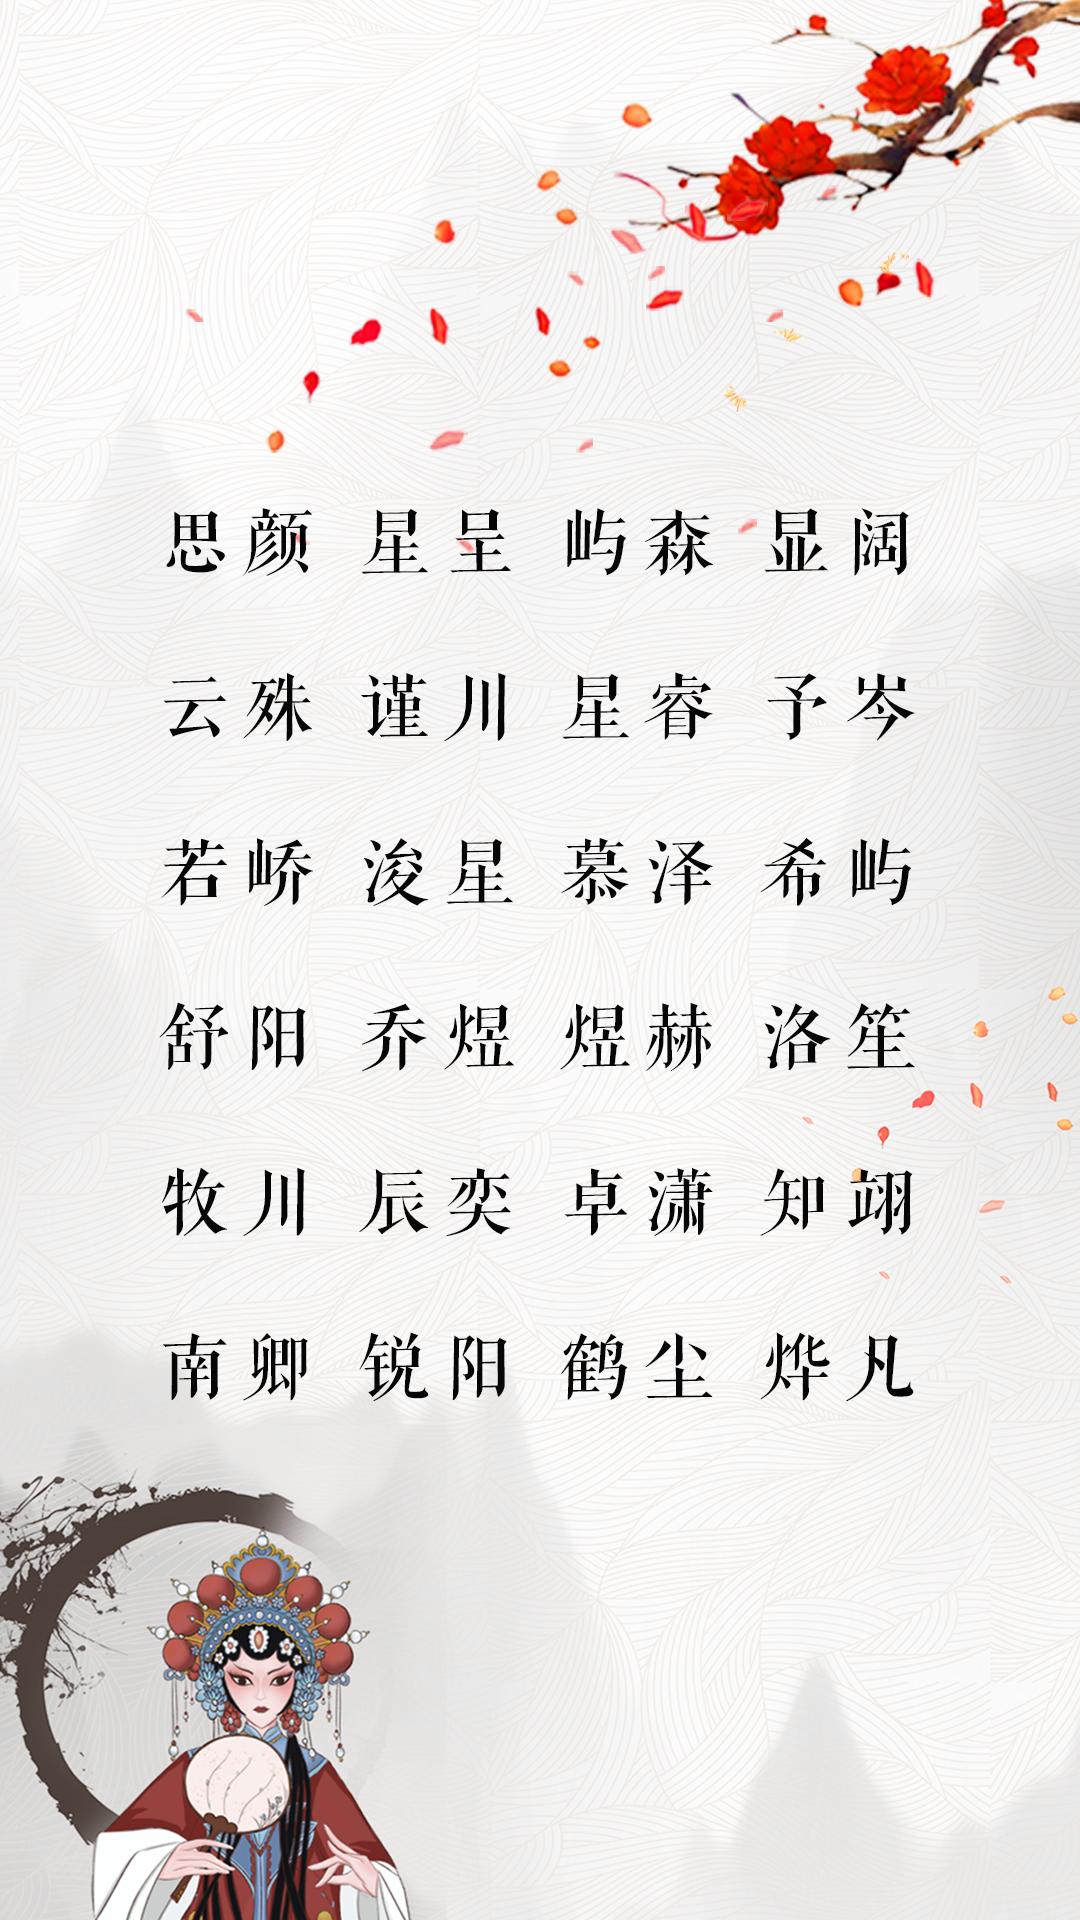 思颜 星呈 屿森 显阔
云殊 谨川 星睿 予岑
若峤 浚星 慕泽 希屿
舒阳 乔煜 煜赫 洛笙
牧川 辰奕 卓潇 知翊
南卿 锐阳 鹤尘 烨凡